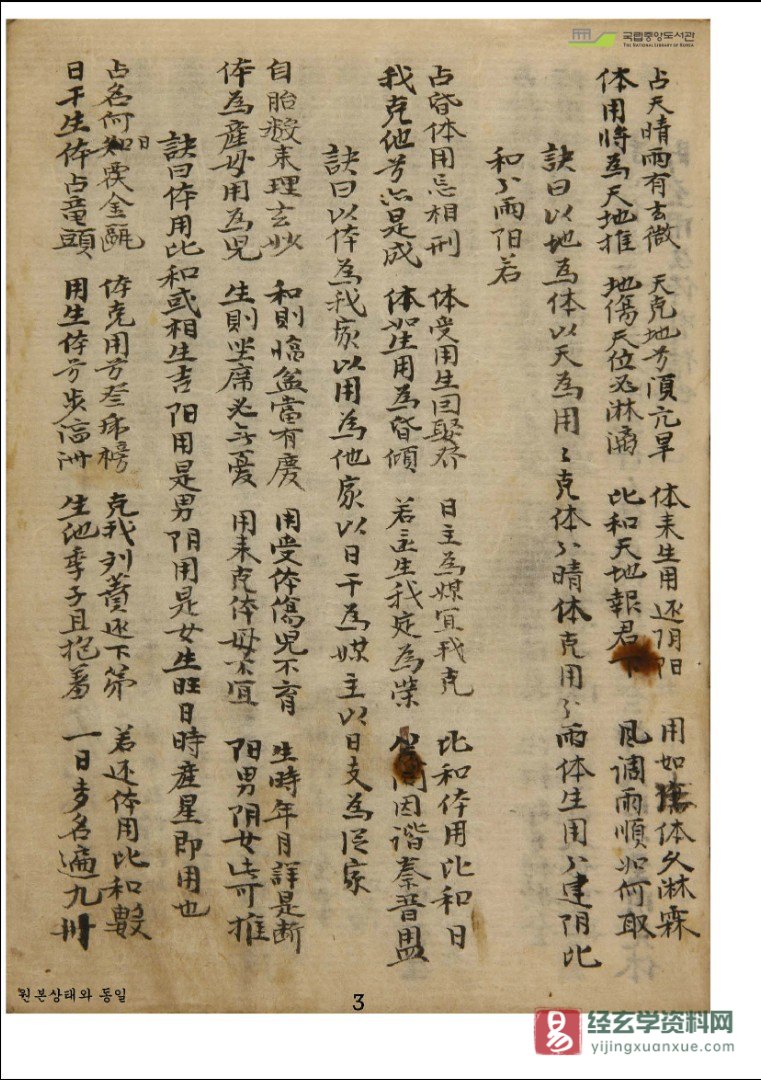 国립중앙도서관
THE NATIONAL LIBRARY OF KOREA
占天晴雨有玄微 天克地兮須亢旱 体来生用还阴阳 用如 体久淋霖
体用将為天地推 地傷天位必淋漓 比和天地報君 風调雨順如何取
訣曰以地為体以天為用〻克体分晴体克用分雨体生用分建阴比
和分雨阳若
占昏体用忌相刑 体受用生回娶 日主為媒宜我克 比和体用比和日
我克他兮必是成 体如生用為昏傾 若主生我定為荣 因谐秦晋盟
訣曰以体為我家以用為他家以日干為媒主以日支為 家
自胎 来理玄妙 和則 盆當有慶 用受体傷児不育 生時年月詳是断
体為産母用為児 生則坐席必无憂 用来克体母不宜 阳男阴女皆可推
訣曰体用比和或相生吉阳用是男阴用是女生旺日時産星即用也
占名何知日 金甌 体克用兮 榜 克我列 还下第 若还体用比和數
日干生体占竜頭 用生体兮 洲 生他季子且抱羞 一日多名遍九卅
원본상태와 동일
3
易
经玄学资料网
yijingxuanxue.com